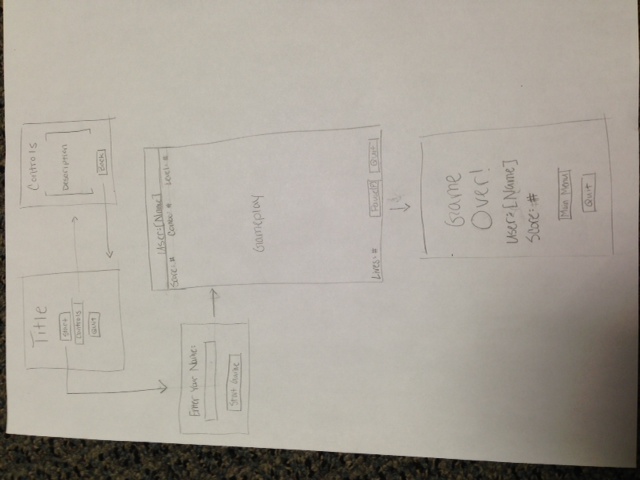 Title
Start
Controls
Quit
Controls
[Description]
Back
Enter Your Name:
Start Game
User:[Name]
Score:# Level:#
Gameplay
Lives:# Quit
Game
Over!
User:[Name]
Score:#
Main Menu
Quit